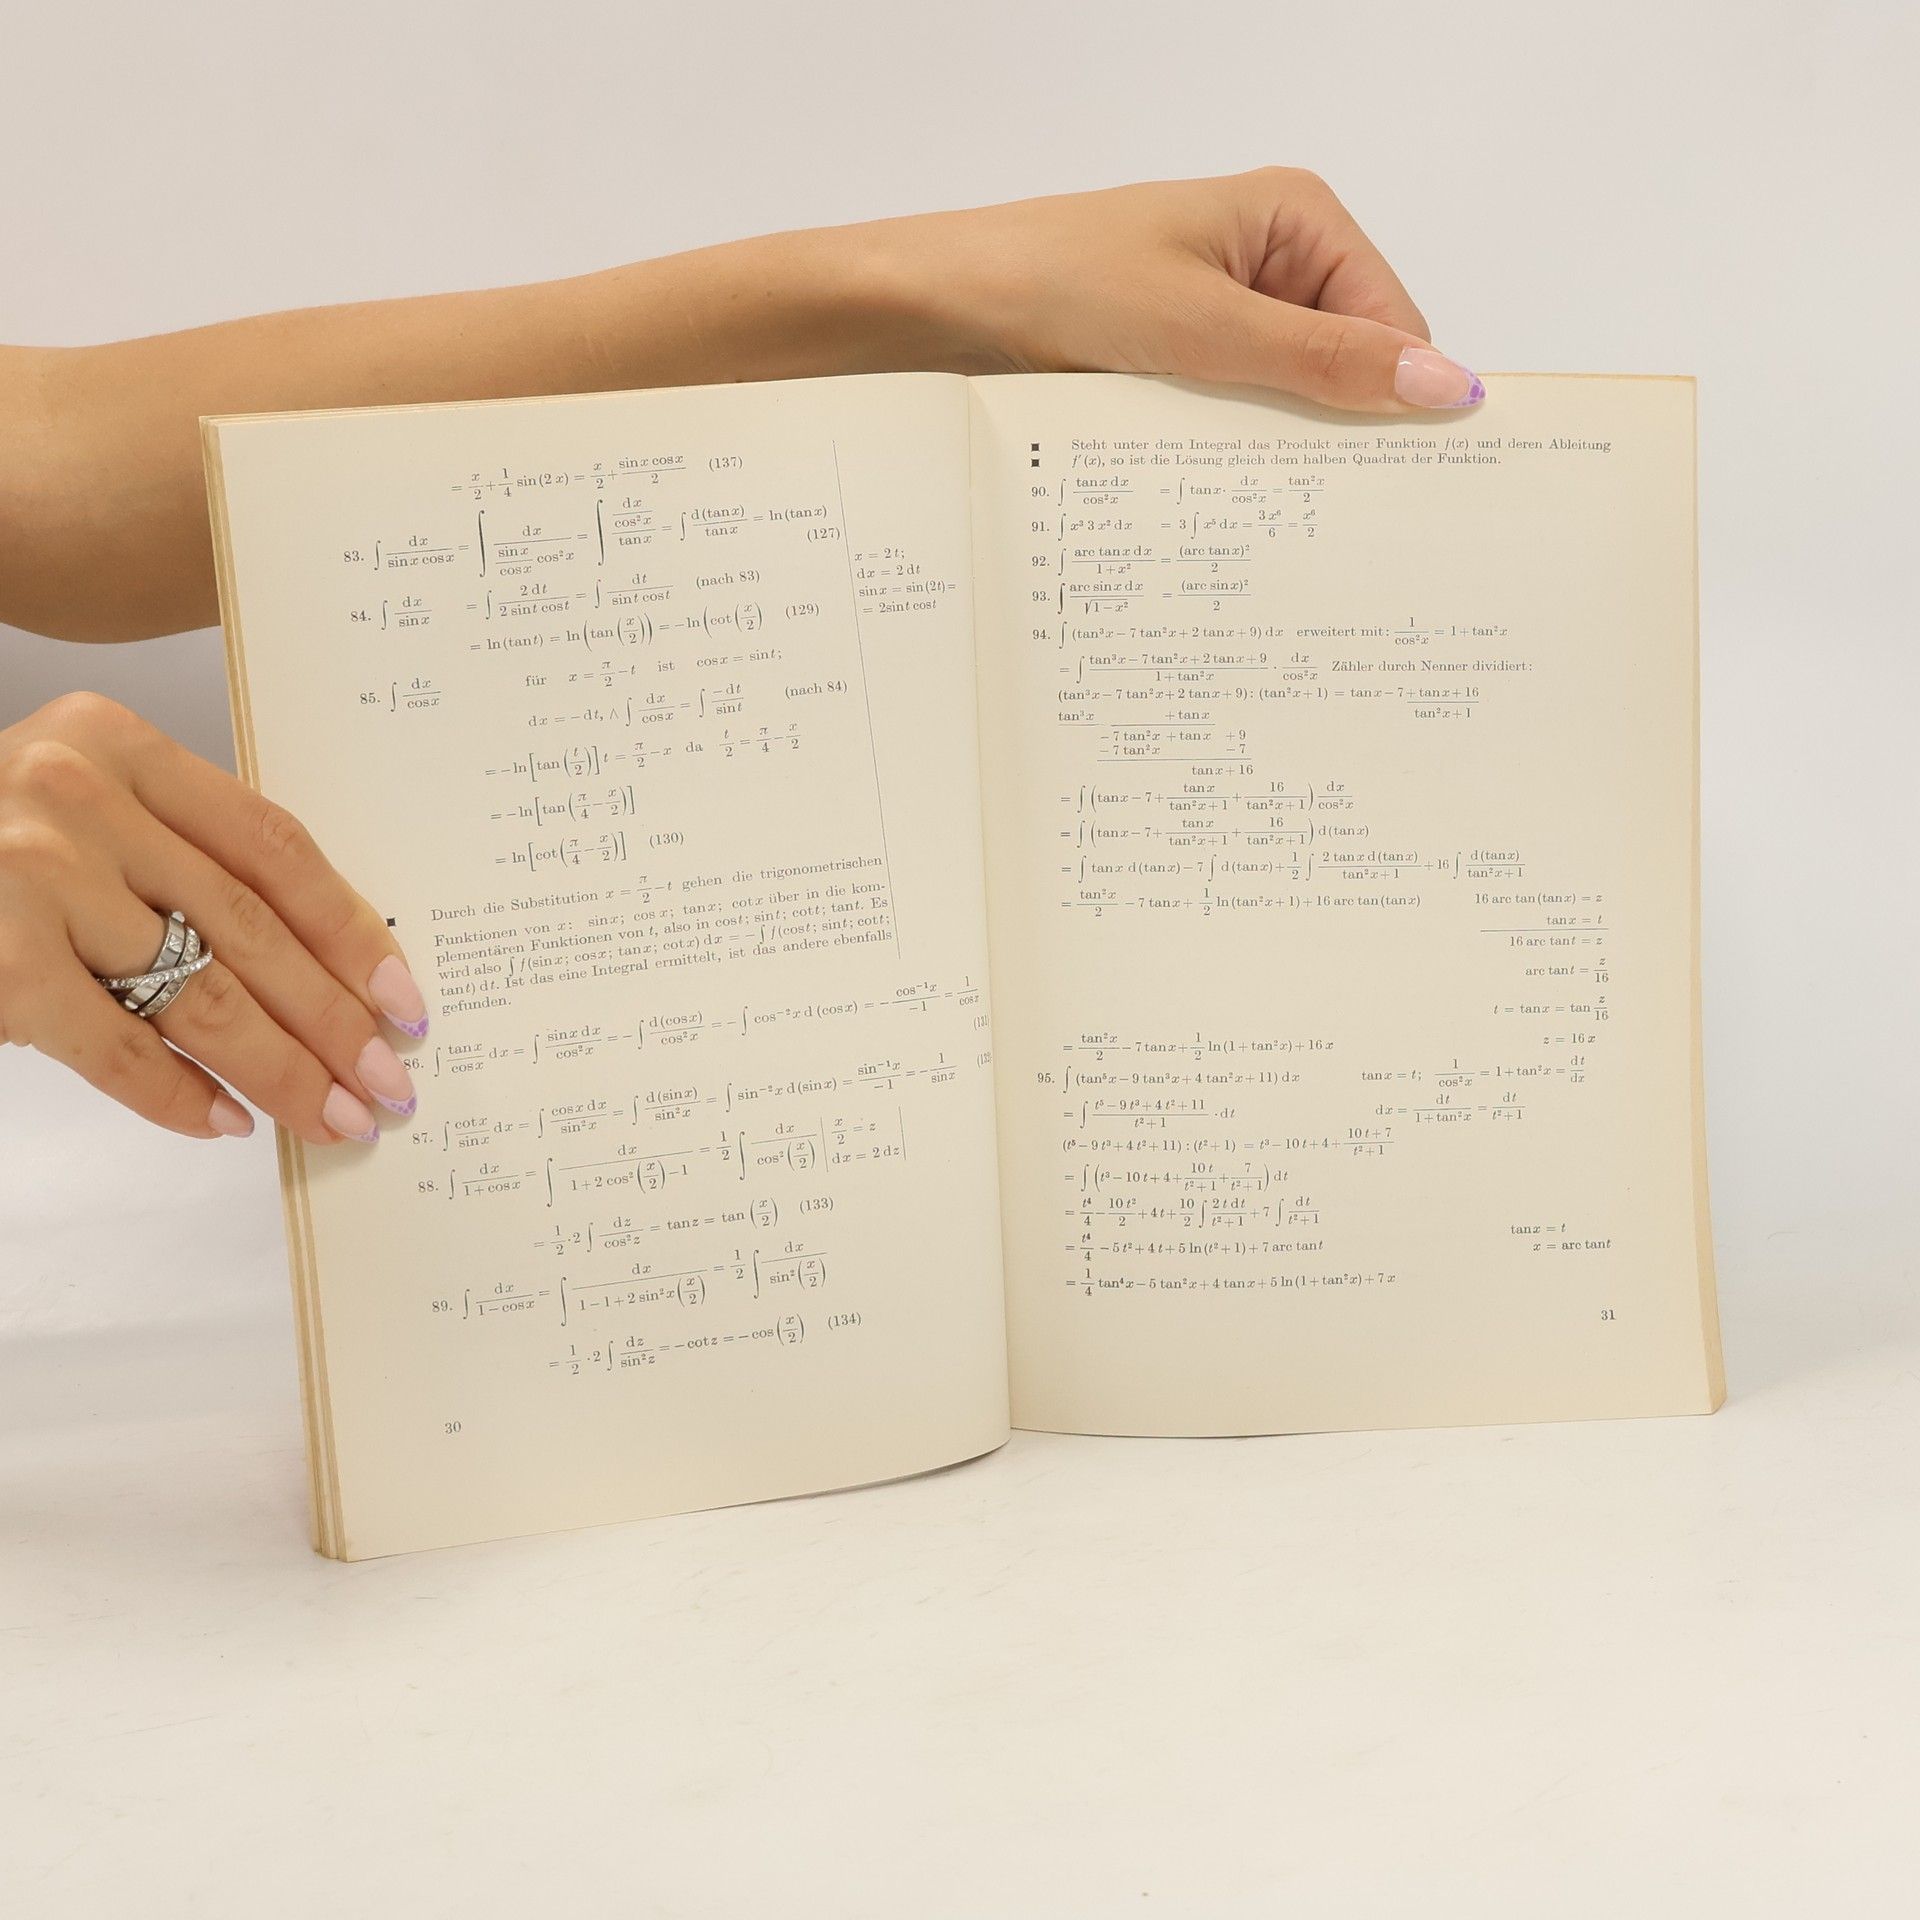 = x/2 + 1/4 sin(2x) = x/2 + (sin x cos x)/2 (137)
83. ∫ dx/(sin x cos x) = ∫ dx/((sin x/cos x) cos²x) = ∫ (dx/cos²x)/tan x = ∫ d(tan x)/tan x = ln(tan x)
(127)
84. ∫ dx/sin x = ∫ 2 dt/(2 sin t cos t) = ∫ dt/(sin t cos t) (nach 83)
= ln(tan t) = ln(tan(x/2)) = −ln(cot(x/2) (129)
x = 2t;
dx = 2 dt
sin x = sin(2t) =
= 2sin t cos t
85. ∫ dx/cos x für x = π/2 − t ist cos x = sin t;
dx = −dt, ∧ ∫ dx/cos x = ∫ −dt/sin t (nach 84)
= −ln[tan(t/2)] t = π/2 − x da t/2 = π/4 − x/2
= −ln[tan(π/4 − x/2)]
= ln[cot(π/4 − x/2)] (130)
■ Durch die Substitution x = π/2 − t gehen die trigonometrischen
Funktionen von x: sin x; cos x; tan x; cot x über in die kom-
plementären Funktionen von t, also in cos t; sin t; cot t; tan t. Es
wird also ∫ f(sin x; cos x; tan x; cot x) dx = − ∫ f(cos t; sin t; cot t;
tan t) dt. Ist das eine Integral ermittelt, ist das andere ebenfalls
gefunden.
86. ∫ tan x/cos x dx = ∫ sin x dx/cos²x = − ∫ d(cos x)/cos²x = − ∫ cos⁻²x d(cos x) = − cos⁻¹x/−1 = 1/cos x
(131)
87. ∫ cot x/sin x dx = ∫ cos x dx/sin²x = ∫ d(sin x)/sin²x = ∫ sin⁻²x d(sin x) = sin⁻¹x/−1 = − 1/sin x
88. ∫ dx/(1+cos x) = ∫ dx/(1+2 cos²(x/2)−1) = 1/2 ∫ dx/cos²(x/2) | x/2 = z
dx = 2 dz |
= 1/2 · 2 ∫ dz/cos²z = tan z = tan(x/2) (133)
89. ∫ dx/(1−cos x) = ∫ dx/(1−1+2 sin²x(x/2)) = 1/2 ∫ dx/sin²(x/2)
= 1/2 · 2 ∫ dz/sin²z = −cot z = −cos(x/2) (134)
30
■ Steht unter dem Integral das Produkt einer Funktion f(x) und deren Ableitung
■ f′(x), so ist die Lösung gleich dem halben Quadrat der Funktion.
90. ∫ tan x dx/cos²x = ∫ tan x · dx/cos²x = tan²x/2
91. ∫ x³ 3 x² dx = 3 ∫ x⁵ dx = 3 x⁶/6 = x⁶/2
92. ∫ arc tan x dx/(1+x²) = (arc tan x)²/2
93. ∫ arc sin x dx/√(1−x²) = (arc sin x)²/2
94. ∫ (tan³x − 7 tan²x + 2 tan x + 9) dx erweitert mit: 1/cos²x = 1 + tan²x
= ∫ (tan³x − 7 tan²x + 2 tan x + 9)/(1 + tan²x) · dx/cos²x Zähler durch Nenner dividiert:
(tan³x − 7 tan²x + 2 tan x + 9) : (tan²x + 1) = tan x − 7 + (tan x + 16)/(tan²x + 1)
tan³x + tan x
− 7 tan²x + tan x + 9
− 7 tan²x − 7
tan x + 16
= ∫ (tan x − 7 + tan x/(tan²x + 1) + 16/(tan²x + 1)) dx/cos²x
= ∫ (tan x − 7 + tan x/(tan²x + 1) + 16/(tan²x + 1)) d(tan x)
= ∫ tan x d(tan x) − 7 ∫ d(tan x) + 1/2 ∫ 2 tan x d(tan x)/(tan²x + 1) + 16 ∫ d(tan x)/(tan²x + 1)
= tan²x/2 − 7 tan x + 1/2 ln(tan²x + 1) + 16 arc tan(tan x) 16 arc tan(tan x) = z
tan x = t
16 arc tan t = z
arc tan t = z/16
t = tan x = tan z/16
= tan²x/2 − 7 tan x + 1/2 ln(1 + tan²x) + 16 x z = 16 x
95. ∫ (tan⁵x − 9 tan³x + 4 tan²x + 11) dx tan x = t; 1/cos²x = 1 + tan²x = dt/dx
= ∫ (t⁵ − 9 t³ + 4 t² + 11)/(t² + 1) · dt dx = dt/(1 + tan²x) = dt/(t² + 1)
(t⁵ − 9 t³ + 4 t² + 11) : (t² + 1) = t³ − 10 t + 4 + (10 t + 7)/(t² + 1)
= ∫ (t³ − 10 t + 4 + 10 t/(t² + 1) + 7/(t² + 1)) dt
= t⁴/4 − 10 t²/2 + 4 t + 10/2 ∫ 2 t dt/(t² + 1) + 7 ∫ dt/(t² + 1)
tan x = t
= t⁴/4 − 5 t² + 4 t + 5 ln(t² + 1) + 7 arc tan t x = arc tan t
= 1/4 tan⁴x − 5 tan²x + 4 tan x + 5 ln(1 + tan²x) + 7 x
31